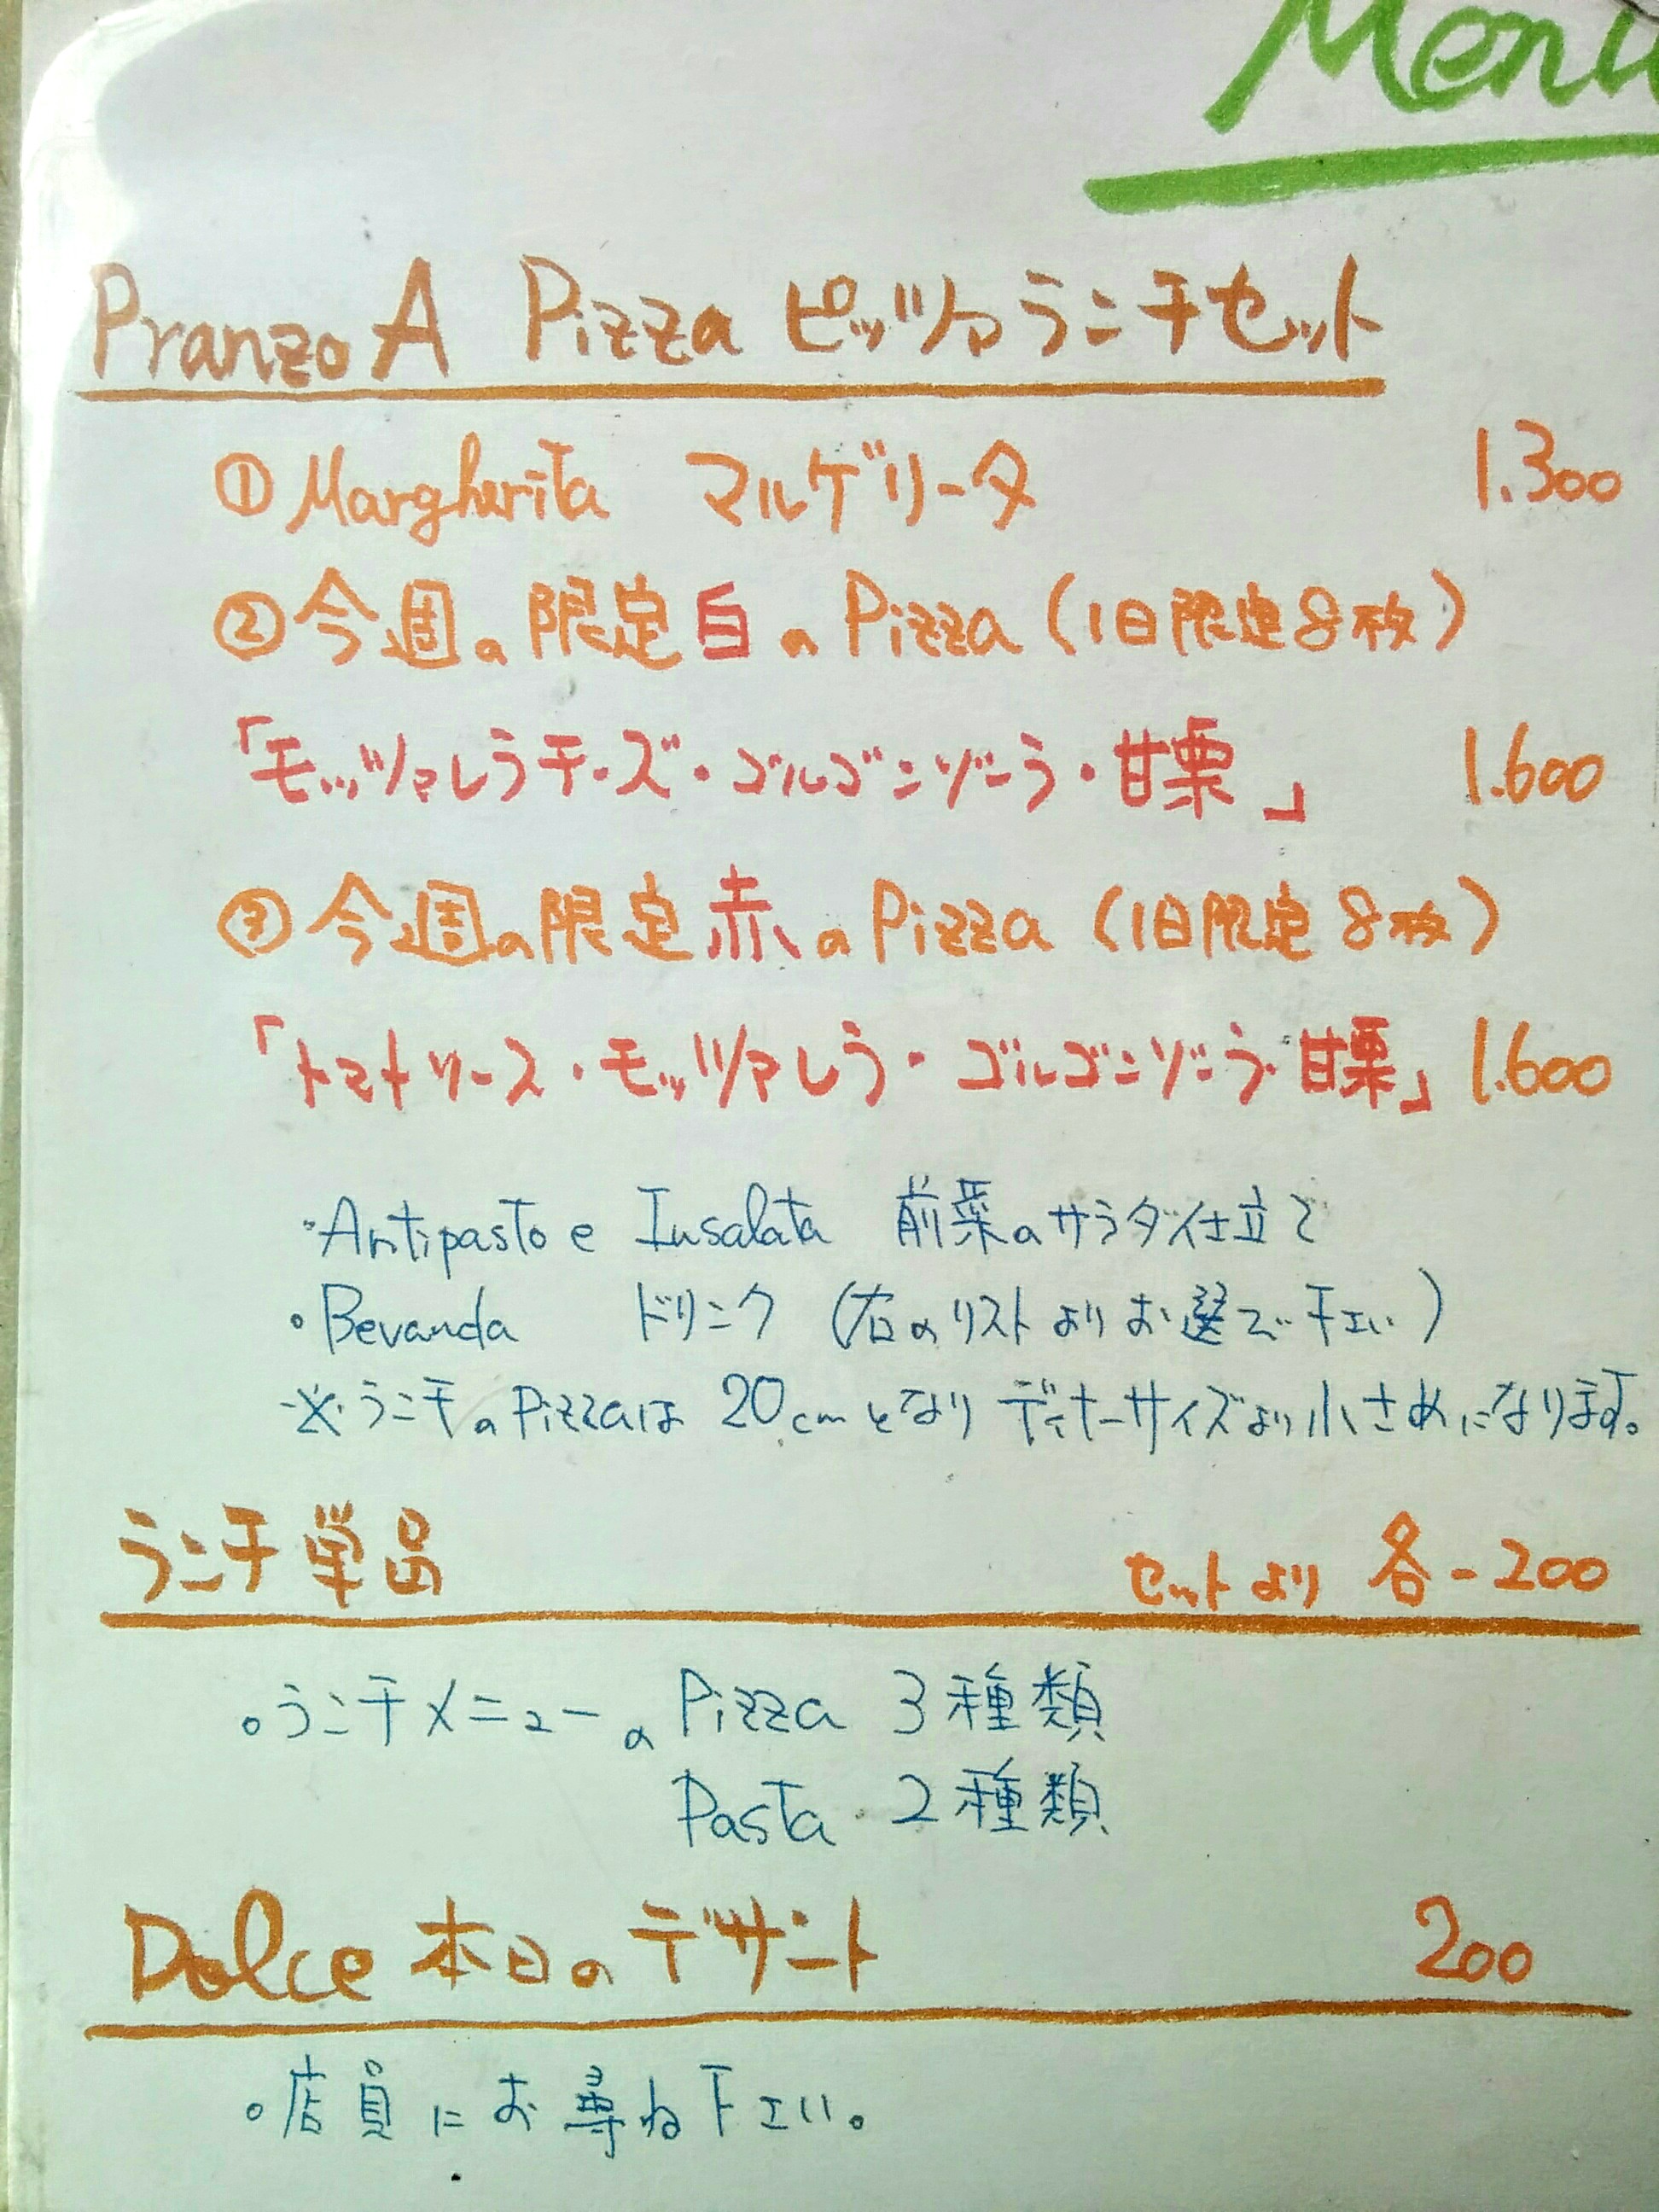 Menu
Pranzo A Pizza ピッツァランチセット
①Margherita マルゲリータ 1.300
②今週の限定白のPizza (1日限定8枚)
「モッツァレラチーズ・ゴルゴンゾーラ・甘栗」 1.600
③今週の限定赤のPizza (1日限定8枚)
「トマトソース・モッツァレラ・ゴルゴンゾーラ・甘栗」 1.600
・Antipasto e Insalata 前菜のサラダ仕立て
・Bevanda ドリンク (右のリストよりお選び下さい)
※ランチのPizzaは20cmとなりディナーサイズより小さめになります。
ランチ単品 セットより 各-200
。ランチメニューのPizza 3種類
Pasta 2種類
Dolce 本日のデザート 200
。店員にお尋ね下さい。